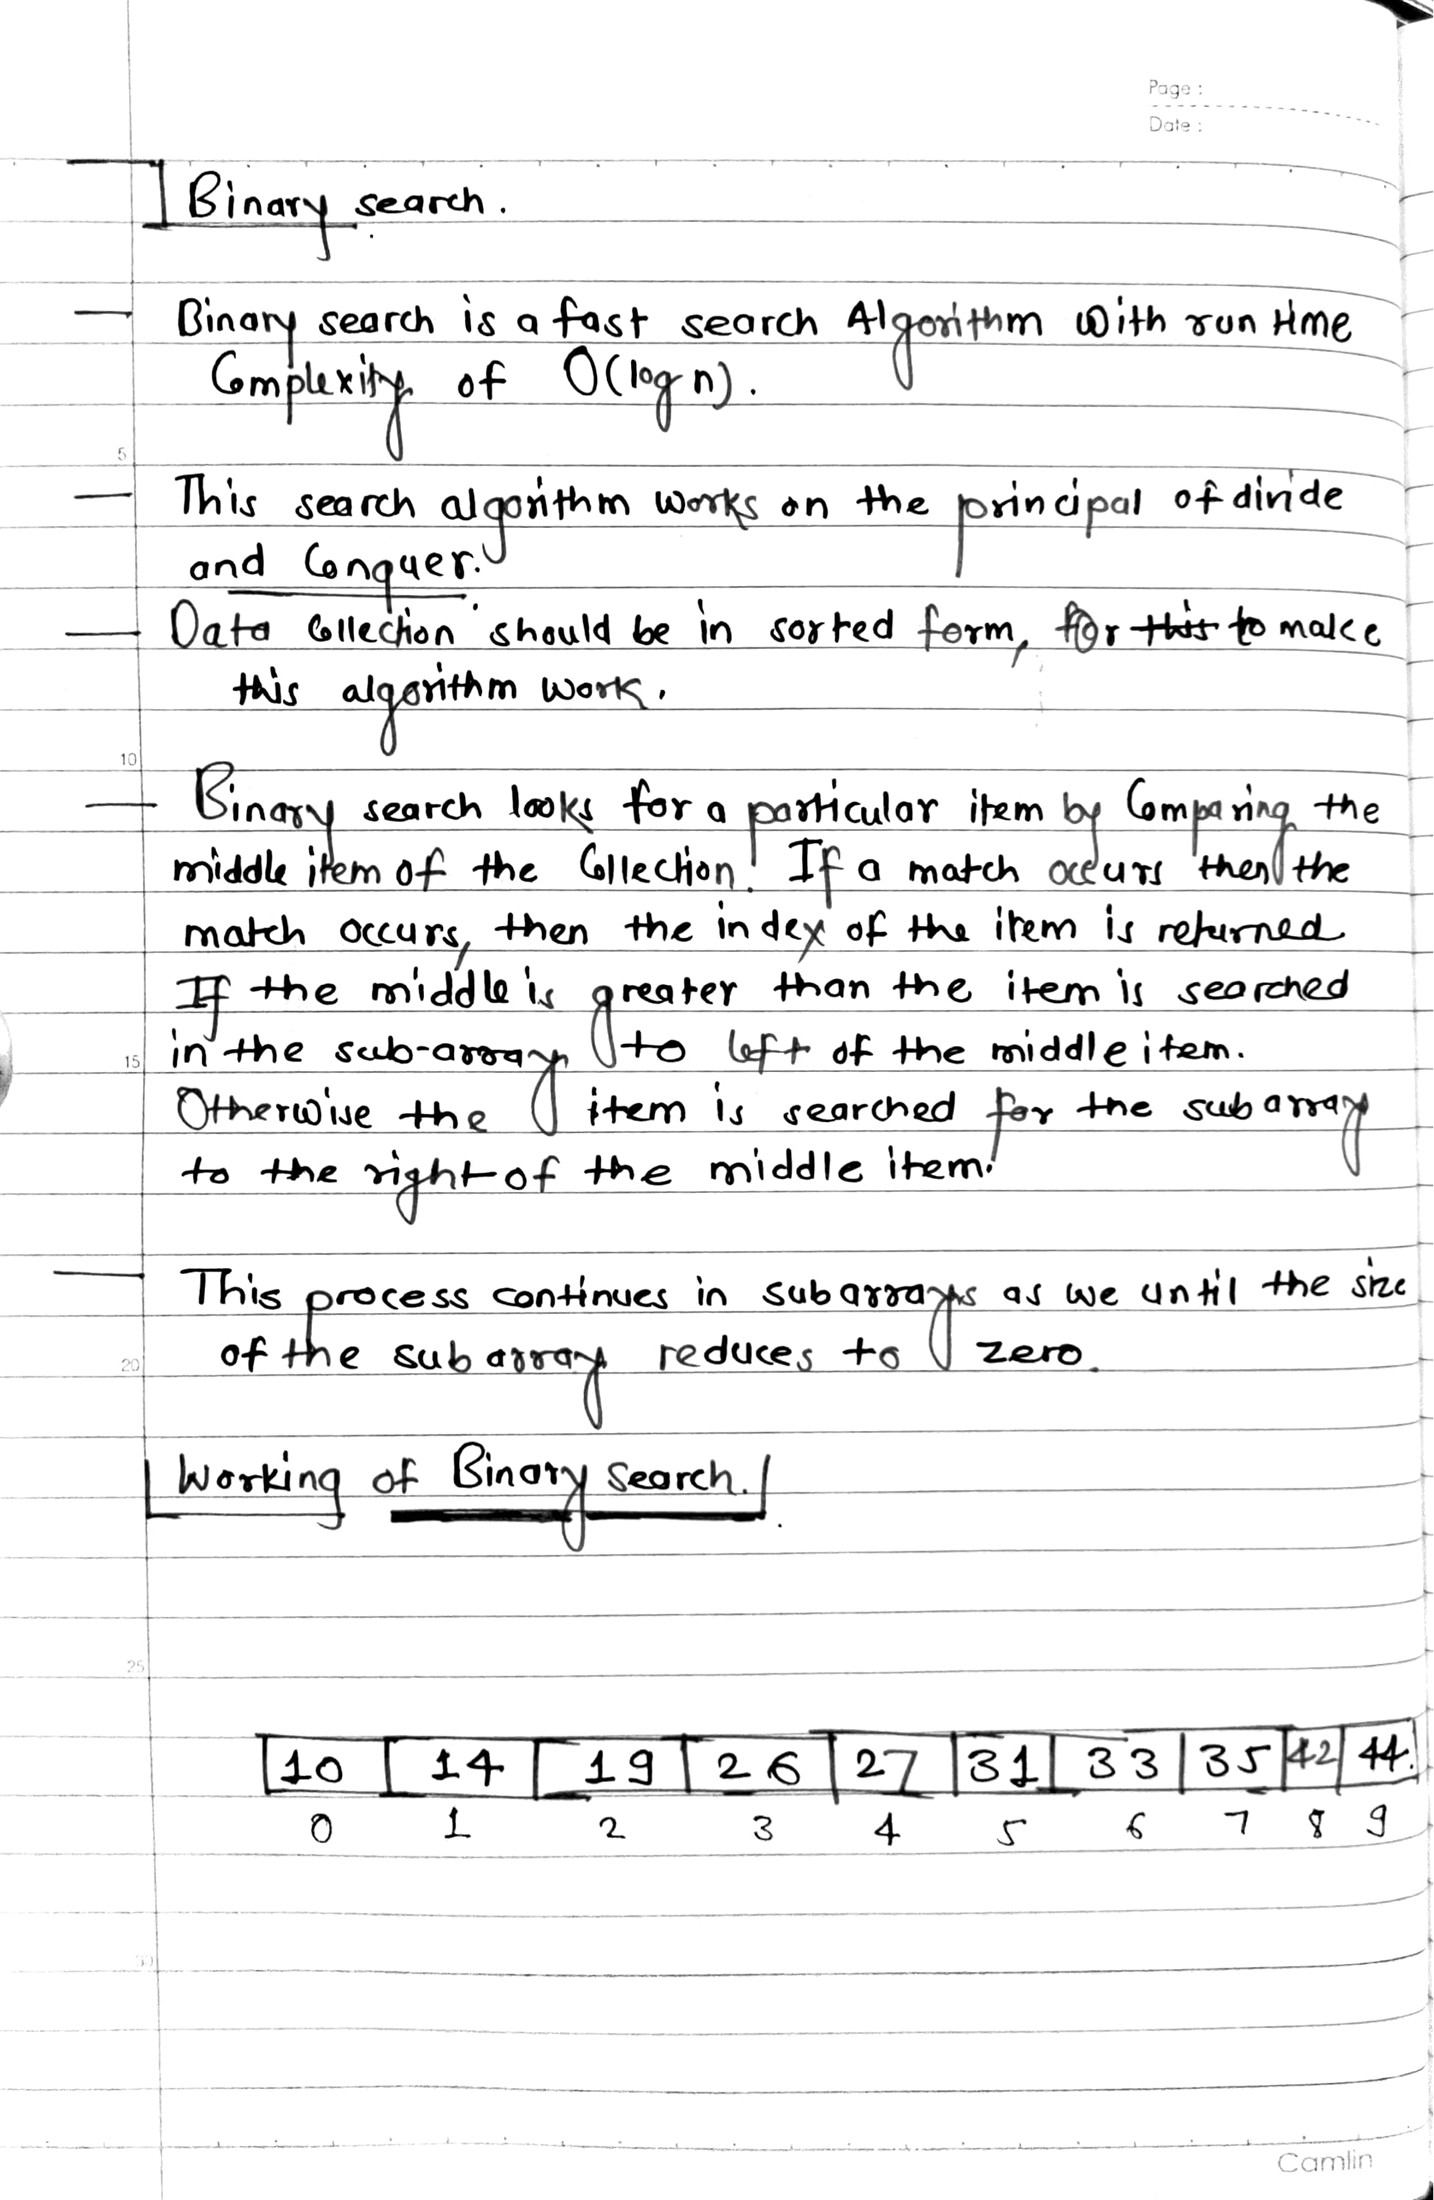 Page :
Date :
Binary search.
Binary search is a fast search Algorithm with run time
Complexity of O(log n).
5
This search algorithm works on the principal of divide
and Conquer.
Data Collection should be in sorted form, for this to make
this algorithm work.
10
Binary search looks for a particular item by Comparing the
middle item of the Collection. If a match occurs then the
match occurs, then the index of the item is returned
If the middle is greater than the item is searched
15 in the sub-array to left of the middle item.
Otherwise the item is searched for the sub array
to the right of the middle item.
This process continues in subarrays as we until the size
20 of the sub array reduces to zero.
Working of Binary search.
25
10 14 19 26 27 31 33 35 42 44
0 1 2 3 4 5 6 7 8 9
30
Camlin